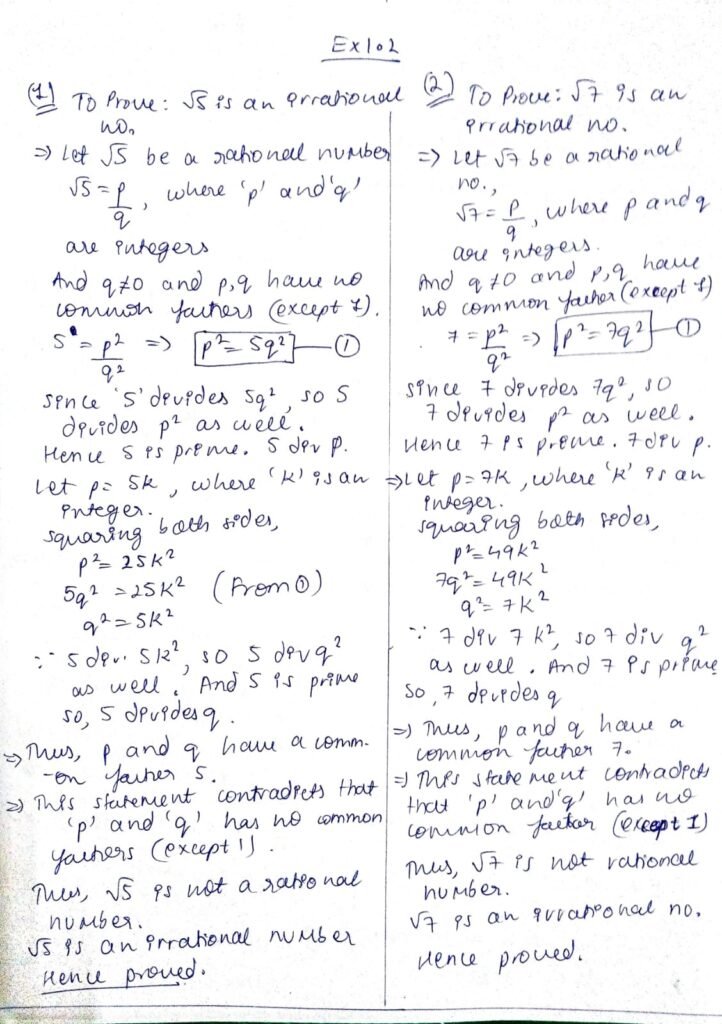 Ex 1.2
(1) To Prove: √5 is an irrational
no.
⇒ Let √5 be a rational number
√5 = p/q, where 'p' and 'q'
are integers
And q≠0 and p,q have no
common factors (except 1).
5 = p²/q² ⇒ p² = 5q² —①
Since '5' divides 5q², so 5
divides p² as well.
Hence 5 is prime. 5 div p.
Let p = 5k, where 'k' is an
integer.
squaring both sides,
p² = 25k²
5q² = 25k² (From ①)
q² = 5k²
∵ 5 div. 5k², so 5 div q²
as well. And 5 is prime
so, 5 divides q.
⇒ Thus, p and q have a comm-
-on factor 5.
⇒ This statement contradicts that
'p' and 'q' has no common
factors (except 1).
Thus, √5 is not a rational
number.
√5 is an irrational number
Hence proved.
(2) To Prove: √7 is an
irrational no.
⇒ Let √7 be a rational
no.,
√7 = p/q, where p and q
are integers.
And q≠0 and p,q have
no common factor (except 1)
7 = p²/q² ⇒ p² = 7q² —①
Since 7 divides 7q², so
7 divides p² as well.
Hence 7 is prime. 7 div p.
⇒ Let p = 7k, where 'k' is an
integer.
squaring both sides,
p² = 49k²
7q² = 49k²
q² = 7k²
∵ 7 div 7k², so 7 div q²
as well. And 7 is prime
so, 7 divides q
⇒ Thus, p and q have a
common factor 7.
⇒ This statement contradicts
that 'p' and 'q' has no
common factor (except 1)
Thus, √7 is not rational
number.
√7 is an irrational no.
Hence proved.